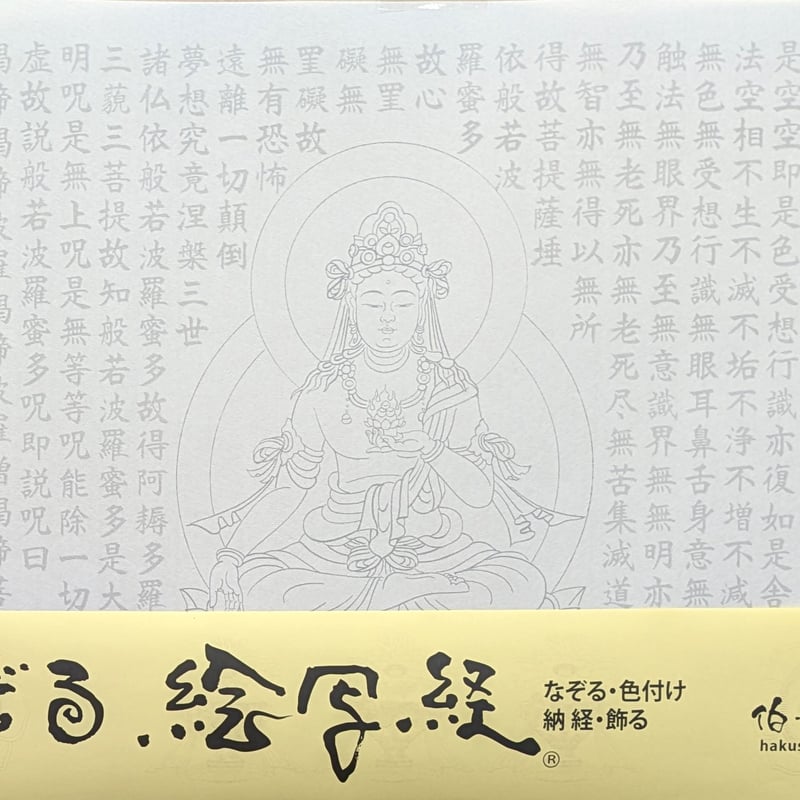 是空空即是色受想行識亦復如是舎
法空相不生不滅不垢不浄不増不減
無色無受想行識無眼耳鼻舌身意無
触法無眼界乃至無意識界無無明亦
乃至無老死亦無老死尽無苦集滅道
無智亦無得以無所
得故菩提薩埵
依般若波
羅蜜多
故心
無罣
礙無
罣礙故
無有恐怖
遠離一切顛倒
夢想究竟涅槃三世
諸仏依般若波羅蜜多故得阿耨多羅
三藐三菩提故知般若波羅蜜多是大
明呪是無上呪是無等等呪能除一切
虚故説般若波羅蜜多呪即説呪曰
羯諦羯諦波羅羯諦波羅僧羯諦菩
ぞる・絵写経®
なぞる・色付け
納経・飾る
伯
hakus